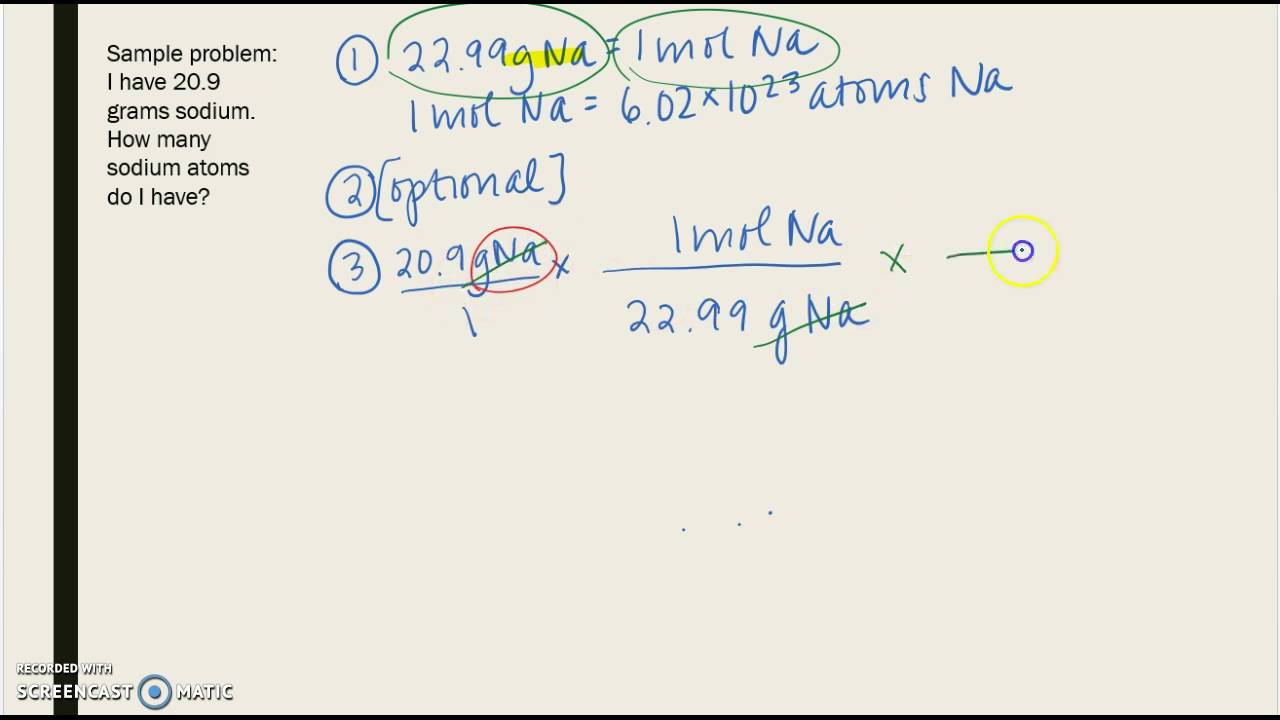 Sample problem:
I have 20.9
grams sodium.
How many
sodium atoms
do I have?
① 22.99 g Na = 1 mol Na
1 mol Na = 6.02 × 10²³ atoms Na
② [optional]
③ 20.9 g Na × 1 mol Na ×
1 22.99 g Na
RECORDED WITH
SCREENCAST MATIC